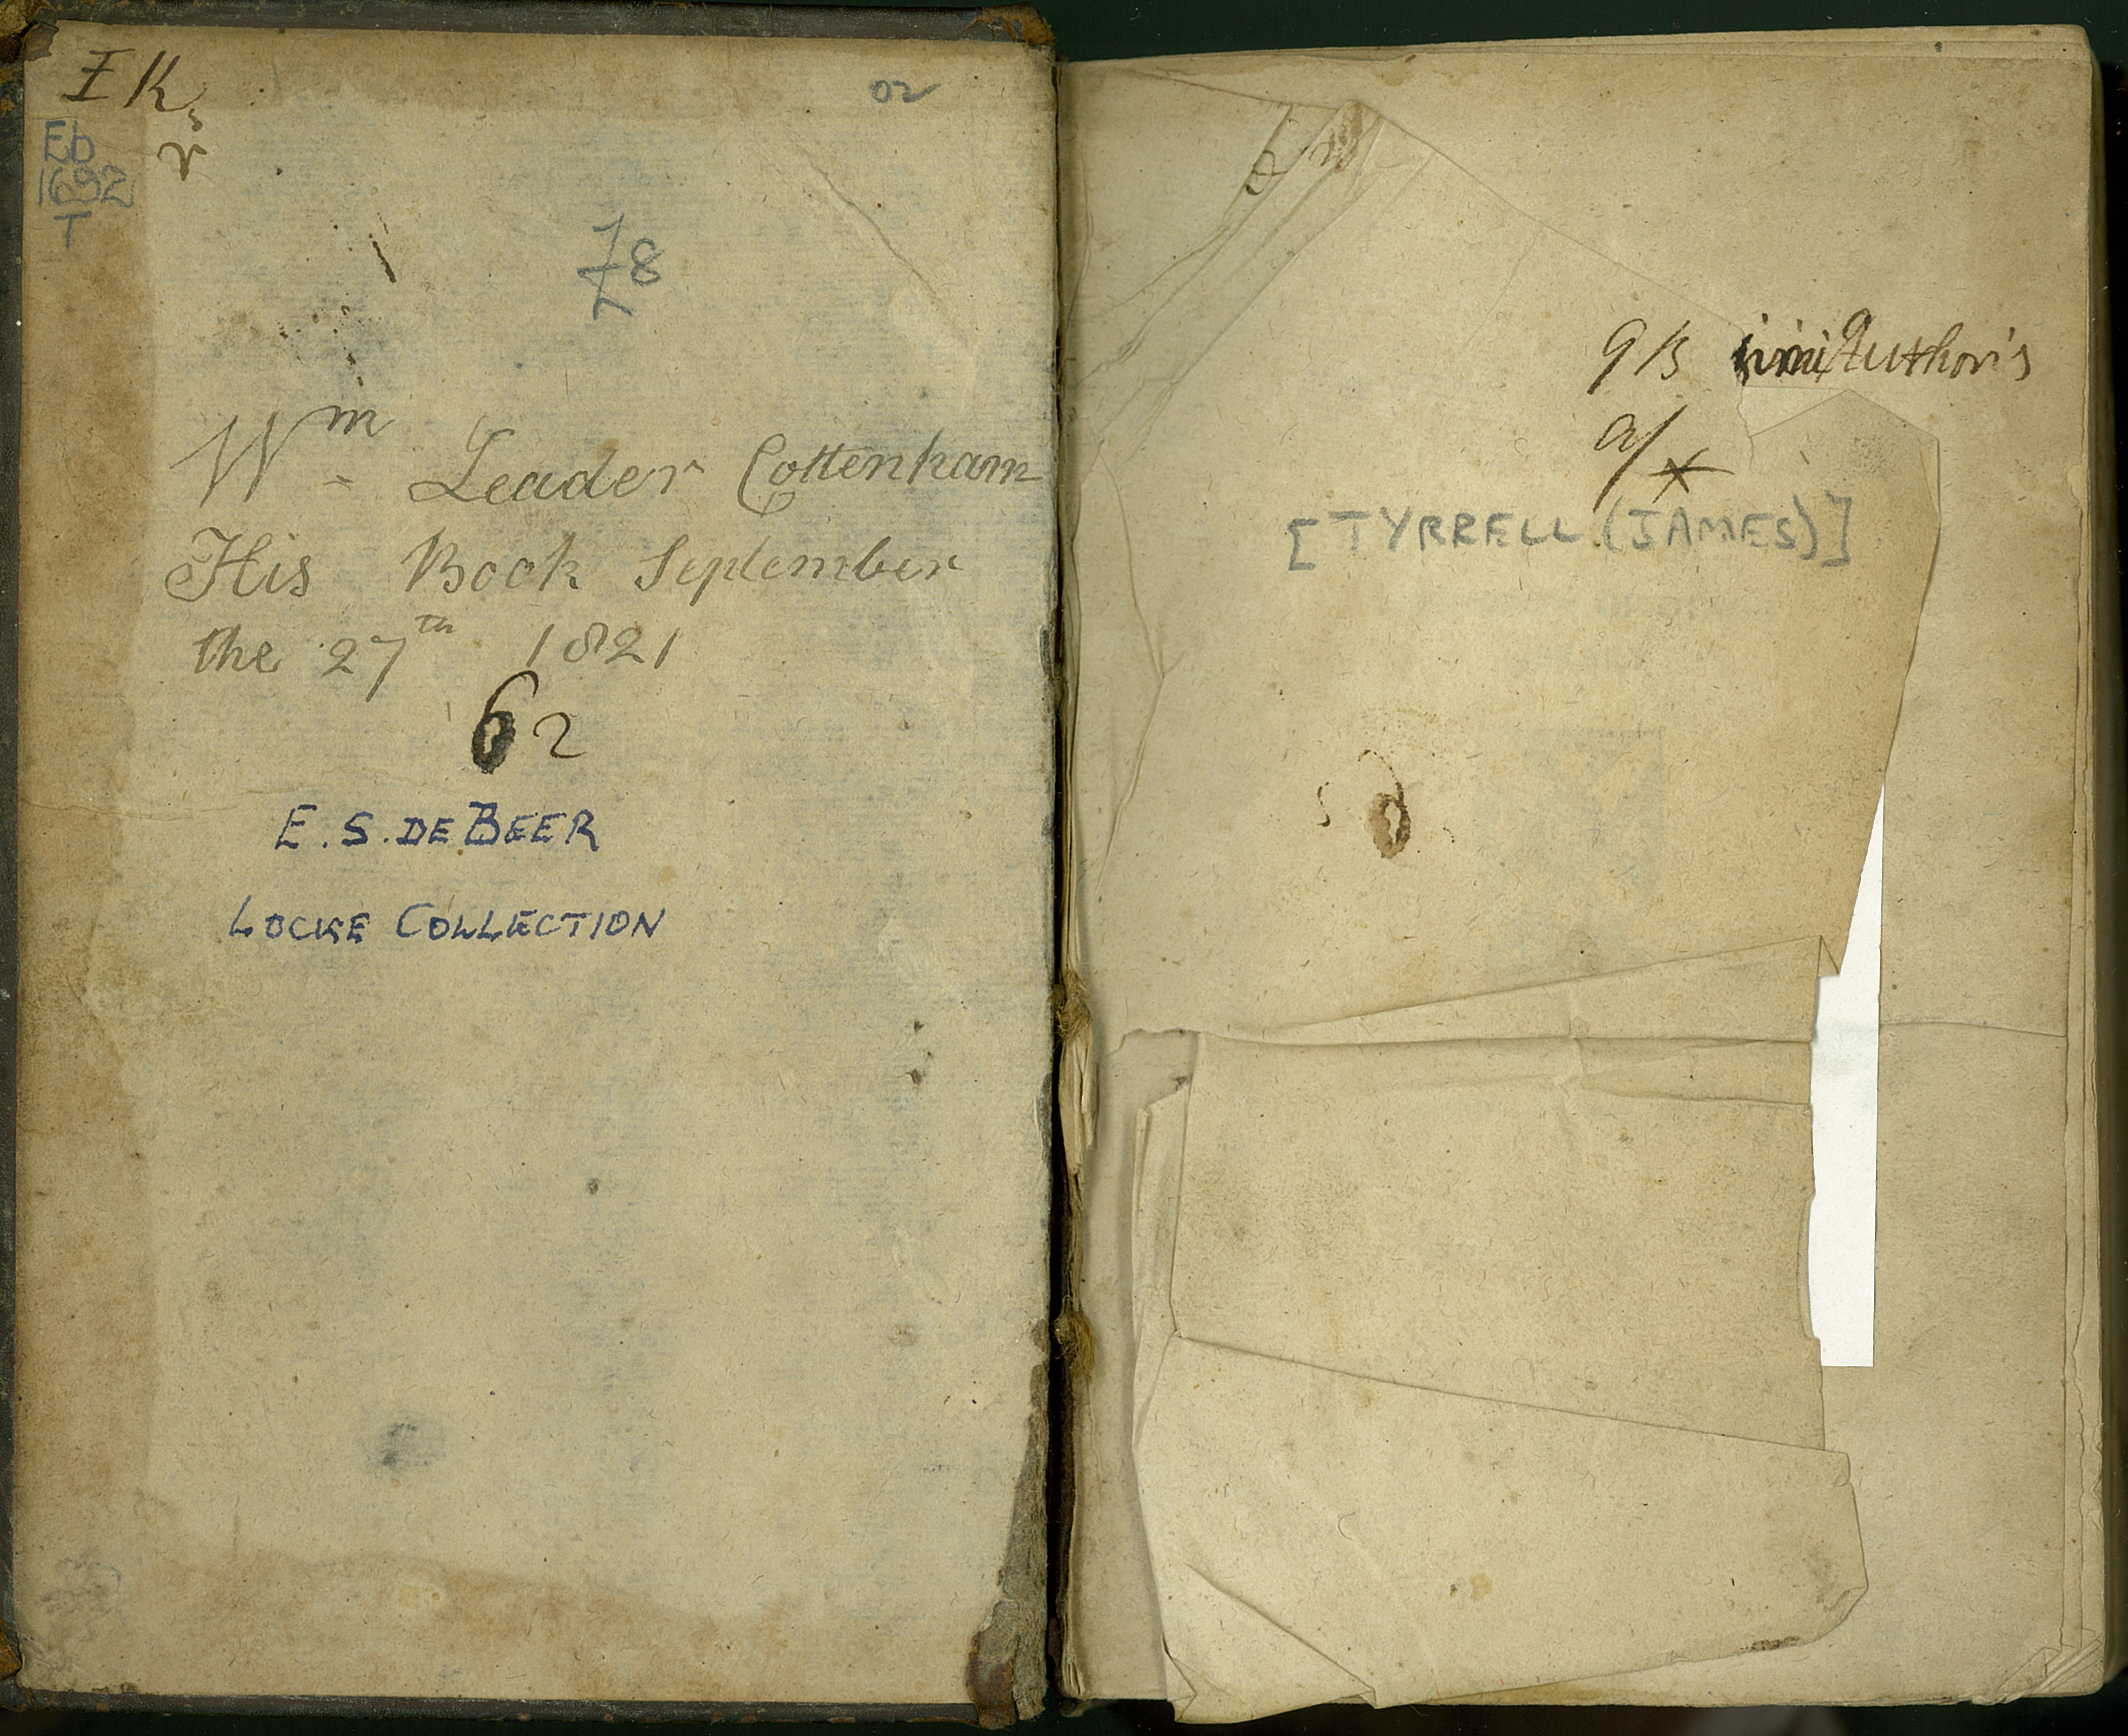 I K
02
Eb
1692
T
78
Wm Leader Cottenham
His Book September
the 27th 1821
62
E. S. DE BEER
LOCKE COLLECTION
Authoris
[TYRRELL (JAMES)]